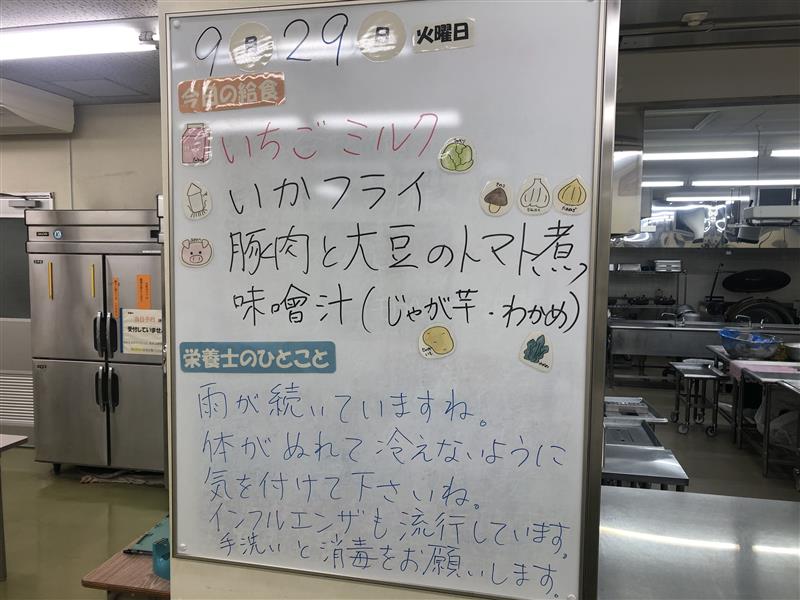 9月29日 火曜日
今日の給食
いちごミルク
いかフライ
豚肉と大豆のトマト煮
味噌汁(じゃが芋・わかめ)
栄養士のひとこと
雨が続いていますね。
体がぬれて冷えないように
気を付けて下さいね。
インフルエンザも流行しています。
手洗いと消毒をお願いします。
受付していませ